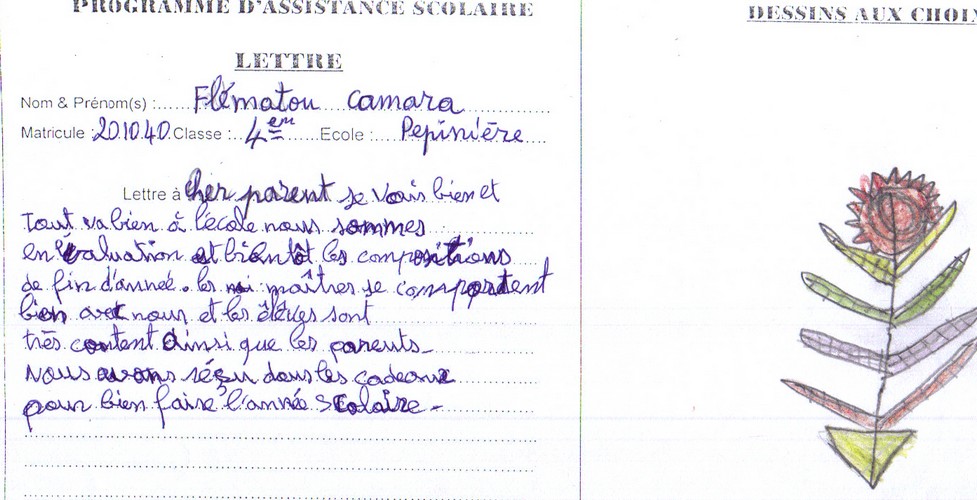 PROGRAMME D'ASSISTANCE SCOLAIRE
LETTRE
Nom & Prénom(s) : Flématou camara
Matricule : 20.10.40. Classe : 4em Ecole : Pépinière
Lettre à cher parent je vais bien et
Tout va bien à l'école nous sommes
en évaluation et bientôt les compositions
de fin d'année. les maîtres se comportent
bien avec nous et les élèves sont
très content ainsi que les parents
Nous avons réçu dous les cadeaux
pour bien faire l'année scolaire -
DESSINS AUX CHOI